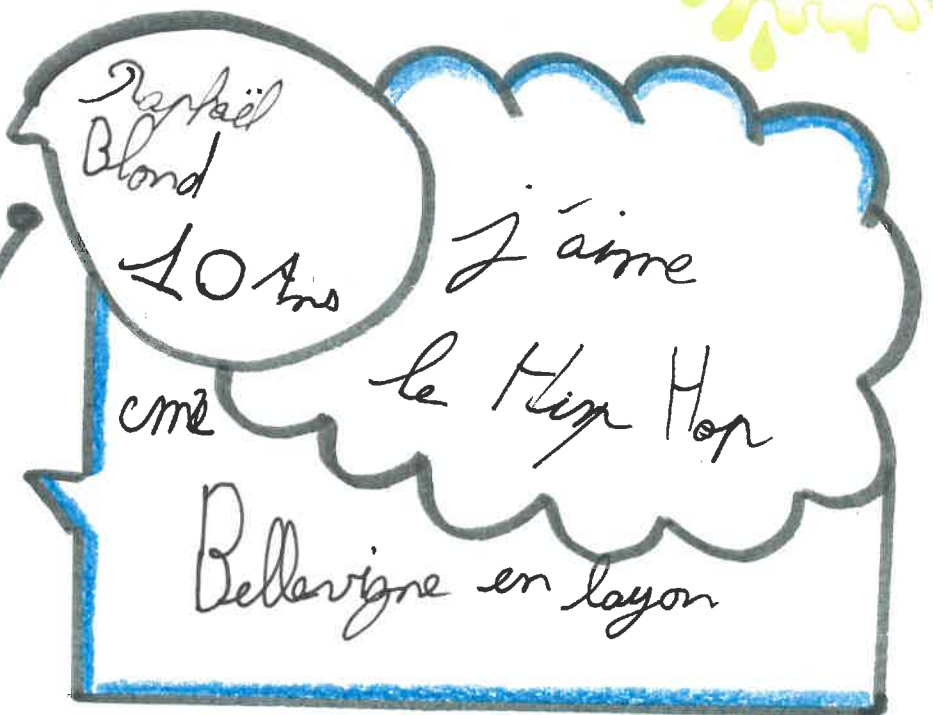 Raphaël
Blond
10 Ans
j'aime
le Hip Hop
cm2
Bellevigne en layon